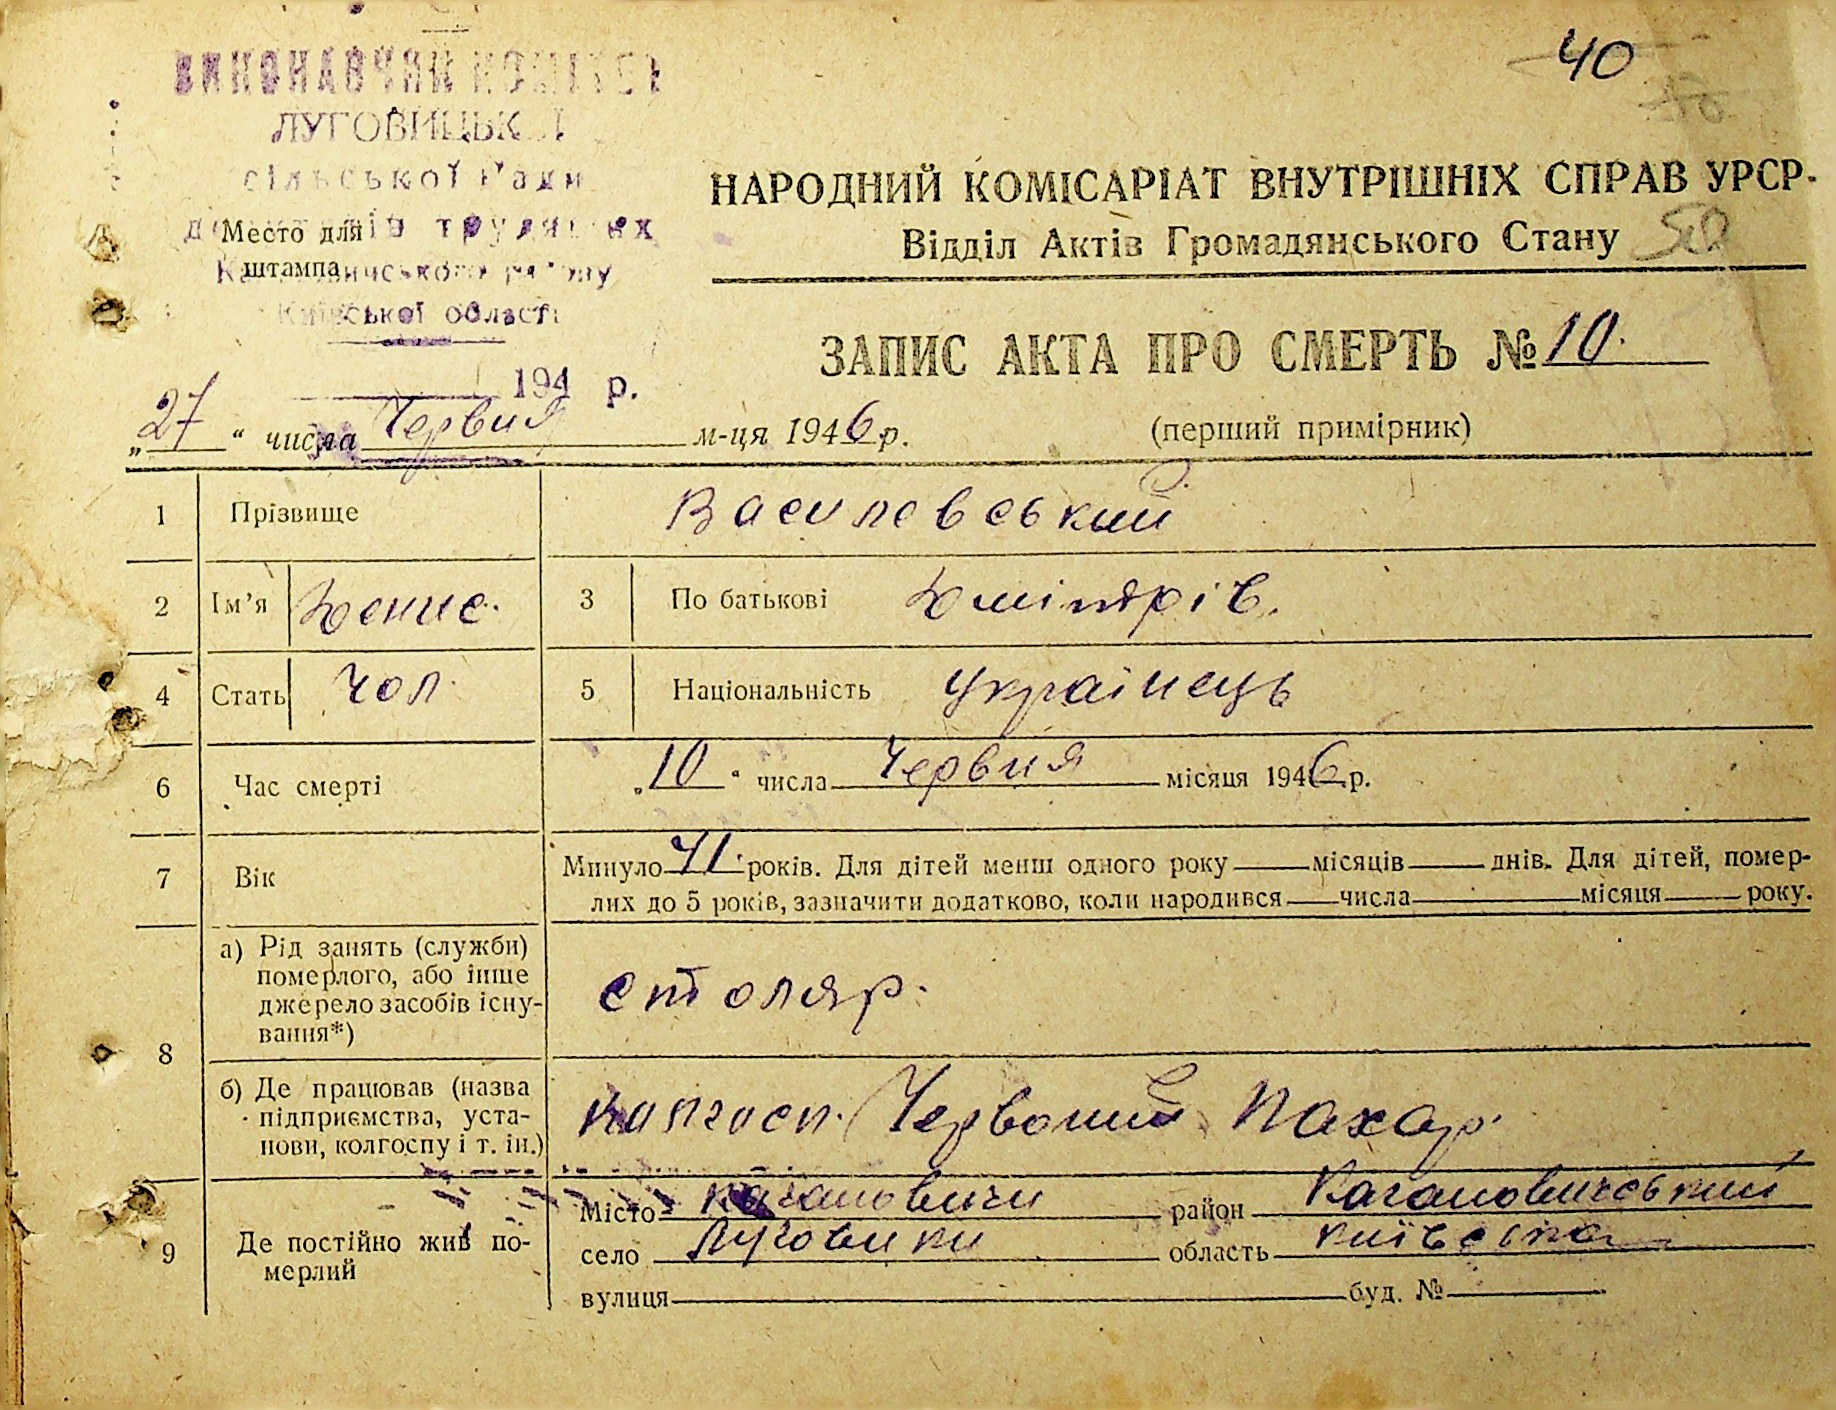 40
ВИКОНАВЧИЙ КОМІТЕТ
ЛУГОВИЦЬКОЇ
сільської Ради
депутатів трудящих
Кагановичського району
Київської області
194 р.
Место для
штампа
НАРОДНИЙ КОМІСАРІАТ ВНУТРІШНІХ СПРАВ УРСР
Відділ Актів Громадянського Стану
ЗАПИС АКТА ПРО СМЕРТЬ № 10.
„27“ числа Червня м-ця 1946 р. (перший примірник)
1 Прізвище Василевський
2 Ім’я Денис. 3 По батькові Дмітрів.
4 Стать чол. 5 Національність українець
6 Час смерті „10“ числа Червня місяця 1946 р.
7 Вік Минуло 41 років. Для дітей менш одного року місяців днів. Для дітей, помер-
лих до 5 років, зазначити додатково, коли народився числа місяця року.
8 а) Рід занять (служби)
померлого, або інше
джерело засобів існу-
вання*)
столяр.
б) Де працював (назва
підприємства, уста-
нови, колгоспу і т. ін.)
Колгосп. Червоний Пахар.
9 Де постійно жив по-
мерлий
Місто Кагановичи район Кагановичський
село Луговики область Київська
вулиця буд. №